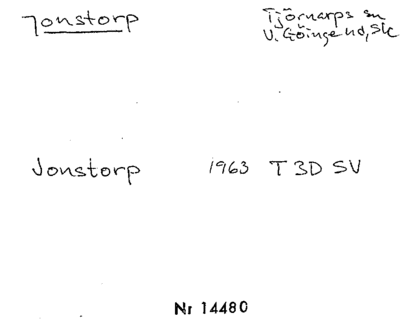 Jonstorp
Tjörnarps sn
V. Göinge hd, Sk
Jonstorp 1963 T 3D SV
Nr 14480